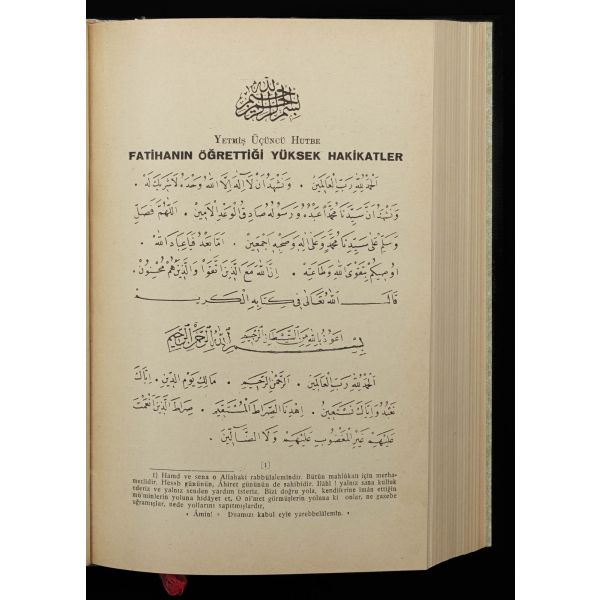 بسم الله الرحمن الرحيم
YETMİŞ ÜÇÜNCÜ HUTBE
FATİHANIN ÖĞRETTİĞİ YÜKSEK HAKİKATLER
اَلْحَمْدُ لِلّٰهِ رَبِّ الْعَالَمِينَ . وَنَشْهَدُ اَنْ لَا اِلٰهَ اِلَّا اللهُ وَحْدَهُ لَا شَرِيكَ لَهُ .
وَنَشْهَدُ اَنَّ سَيِّدَنَا مُحَمَّدًا عَبْدُهُ وَرَسُولُهُ صَادِقُ الْوَعْدِ الْاَمِينِ . اَللّٰهُمَّ فَصَلِّ
وَسَلِّمْ عَلَى سَيِّدِنَا مُحَمَّدٍ وَعَلَى اٰلِهِ وَصَحْبِهِ اَجْمَعِينَ . اَمَّا بَعْدُ فَيَا عِبَادَ اللهِ .
اُوصِيكُمْ بِتَقْوَى اللهِ وَطَاعَتِهِ . اِنَّ اللهَ مَعَ الَّذِينَ اتَّقَوْا وَالَّذِينَ هُمْ مُحْسِنُونَ .
قَالَ اللهُ تَعَالَى فِي كِتَابِهِ الْكَرِيمِ
اَعُوذُ بِاللهِ مِنَ الشَّيْطَانِ الرَّجِيمِ
بِسْمِ اللهِ الرَّحْمٰنِ الرَّحِيمِ
اَلْحَمْدُ لِلّٰهِ رَبِّ الْعَالَمِينَ . اَلرَّحْمٰنِ الرَّحِيمِ . مَالِكِ يَوْمِ الدِّينِ . اِيَّاكَ
نَعْبُدُ وَاِيَّاكَ نَسْتَعِينُ . اِهْدِنَا الصِّرَاطَ الْمُسْتَقِيمَ . صِرَاطَ الَّذِينَ اَنْعَمْتَ
عَلَيْهِمْ غَيْرِ الْمَغْضُوبِ عَلَيْهِمْ وَلَا الضَّالِّينَ .
[1]
1) Hamd ve sena o Allahaki rabbülalemindir. Bütün mahlûkatı için merha-
metlidir. Hesab gününün, Âhiret gününün de sahibidir. İlâhî ! yalnız sana kulluk
ederiz ve yalnız senden yardım isteriz. Bizi doğru yola, kendilerine imân ettiğin
mü'minlerin yoluna hidâyet et. O ni'met görmüşlerin yoluna ki onlar, ne gazebe
uğramışlar, nede yollarını sapıtmışlardır.
• Âmin! • Duamızı kabul eyle yarebbelâlemin. •